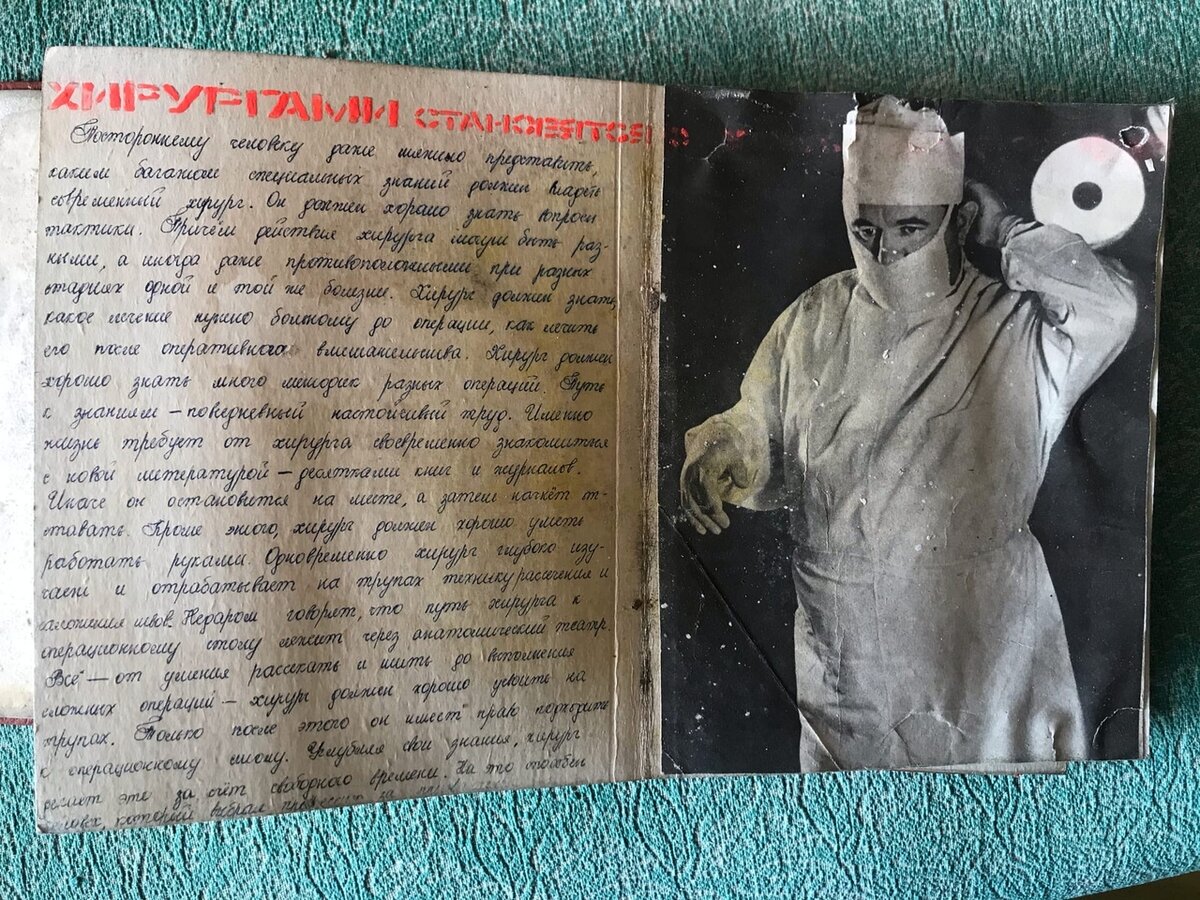 ХИРУРГАМИ СТАНОВЯТСЯ
Постороннему человеку даже тяжело представить,
каким багажом специальных знаний должен владеть
современный хирург. Он должен хорошо знать вопросы
тактики. Причём действия хирурга могут быть раз-
ными, а иногда даже противоположными при разных
стадиях одной и той же болезни. Хирург должен знать,
какое лечение нужно больному до операции, как лечить
его после оперативного вмешательства. Хирург должен
хорошо знать много методик разных операций. Путь
к знаниям — повседневный настойчивый труд. Именно
жизнь требует от хирурга своевременно знакомиться
с новой литературой — десятками книг и журналов.
Иначе он остановится на месте, а затем начнёт от-
ставать. Кроме этого, хирург должен хорошо уметь
работать руками. Одновременно хирург глубоко изу-
чает и отрабатывает на трупах технику рассечения и
наложения швов. Недаром говорят, что путь хирурга к
операционному столу лежит через анатомический театр.
Всё — от умения рассекать и шить до выполнения
сложных операций — хирург должен хорошо усвоить на
трупах. Только после этого он имеет право подходить
к операционному столу. Углубляя свои знания, хирург
делает это за счёт свободного времени. На это способен
человек, который выбрал профессию